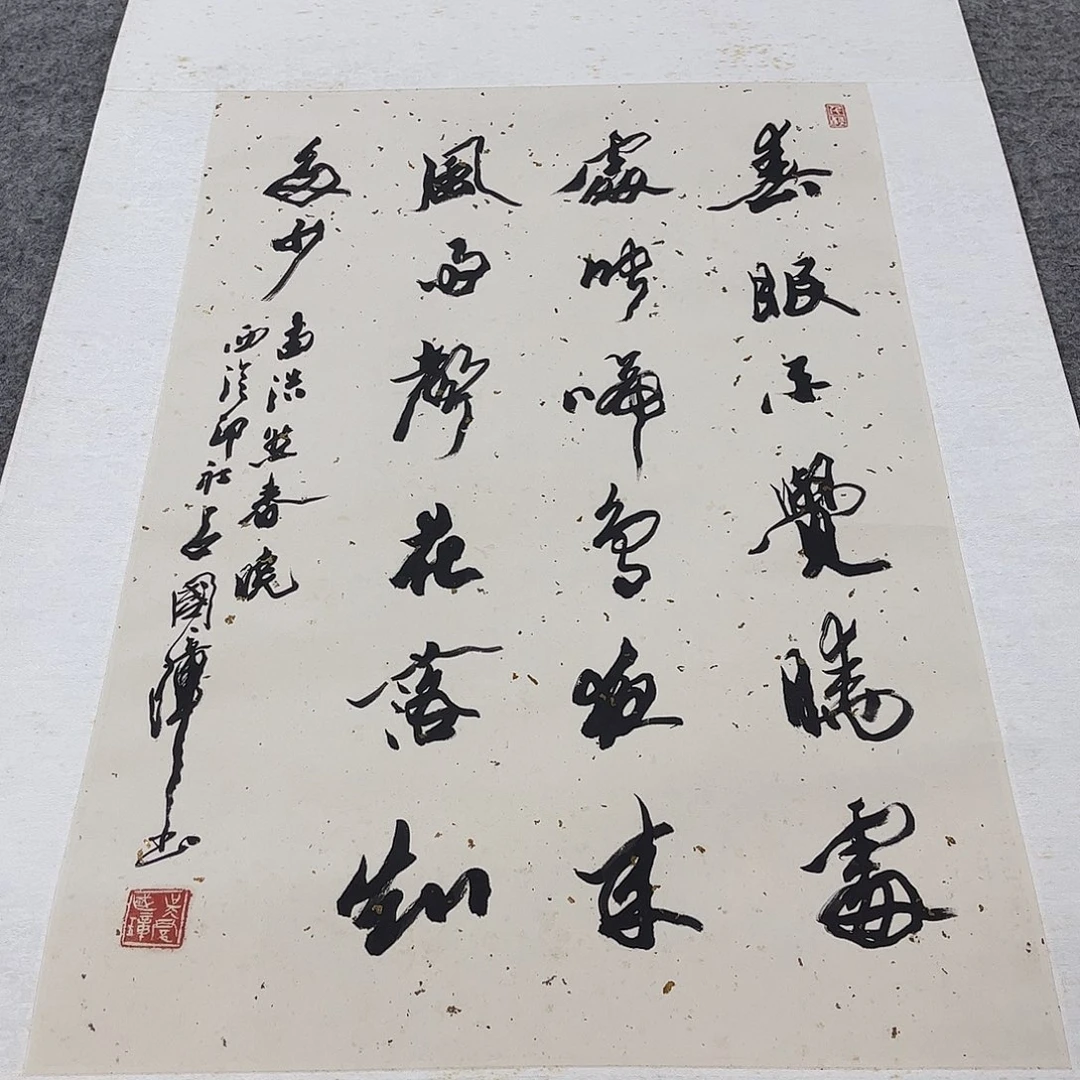 春眠不覺曉處
處啼鳥夜來
風雨聲花落知
多少
孟浩然春曉
西泠印社國璋書